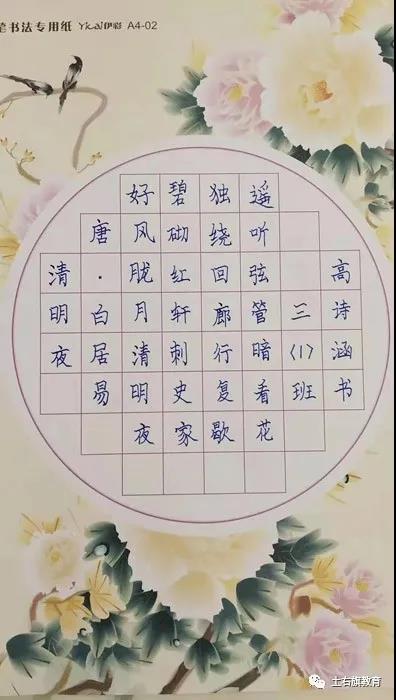 笔书法专用纸 Yicai伊彩 A4-02
清明夜
唐·白居易
好风胧月清明夜
碧砌红轩刺史家
独绕回廊行复歇
遥听弦管暗看花
三(1)班
高诗涵书
土右旗教育